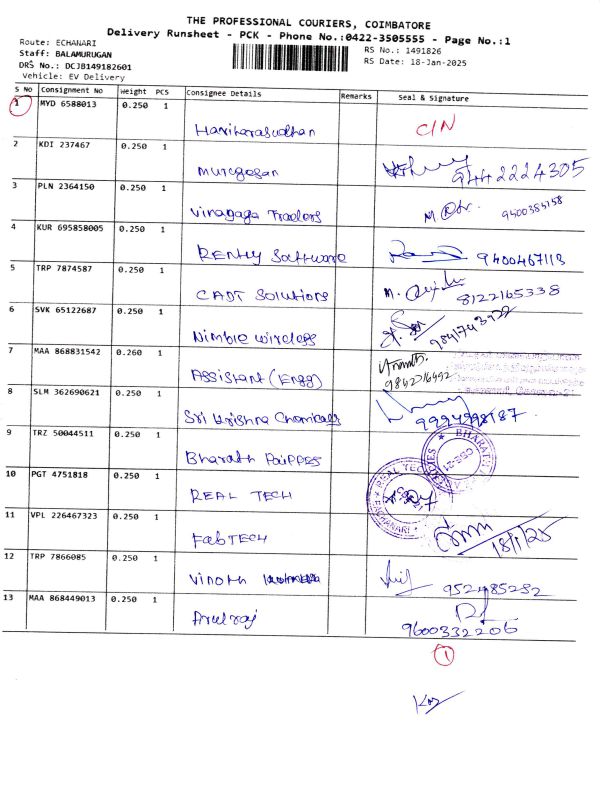 THE PROFESSIONAL COURIERS, COIMBATORE
Delivery Runsheet - PCK - Phone No.:0422-3505555 - Page No.:1
Route: ECHANARI
Staff: BALAMURUGAN
DRS No.: DCJB149182601
Vehicle: EV Delivery
RS No.: 1491826
RS Date: 18-Jan-2025
S No Consignment No Weight PCS Consignee Details Remarks Seal & Signature
1 MYD 6588013 0.250 1 Hariharasudhan C/N
2 KDI 237467 0.250 1 Murugesan 9442224305
3 PLN 2364150 0.250 1 Vinagaga Traders
4 KUR 695858005 0.250 1 RENtly Software 9400467113
5 TRP 7874587 0.250 1 CADT Solutions 8122165338
6 SVK 65122687 0.250 1 Nimble wireless 9841743922
7 MAA 868831542 0.260 1 Assistant (Engg) 9842216492
8 SLM 362690621 0.250 1 Sri Krishna Chemicals 9994998187
9 TRZ 50044511 0.250 1 Bharath BHARATH
10 PGT 4751818 0.250 1 REAL TECH REAL TEC ECHANARI
11 VPL 226467323 0.250 1 FabTECH 18/1/25
12 TRP 7866085 0.250 1 Vinoth
13 MAA 868449013 0.250 1 Arulraj 9600332206
1